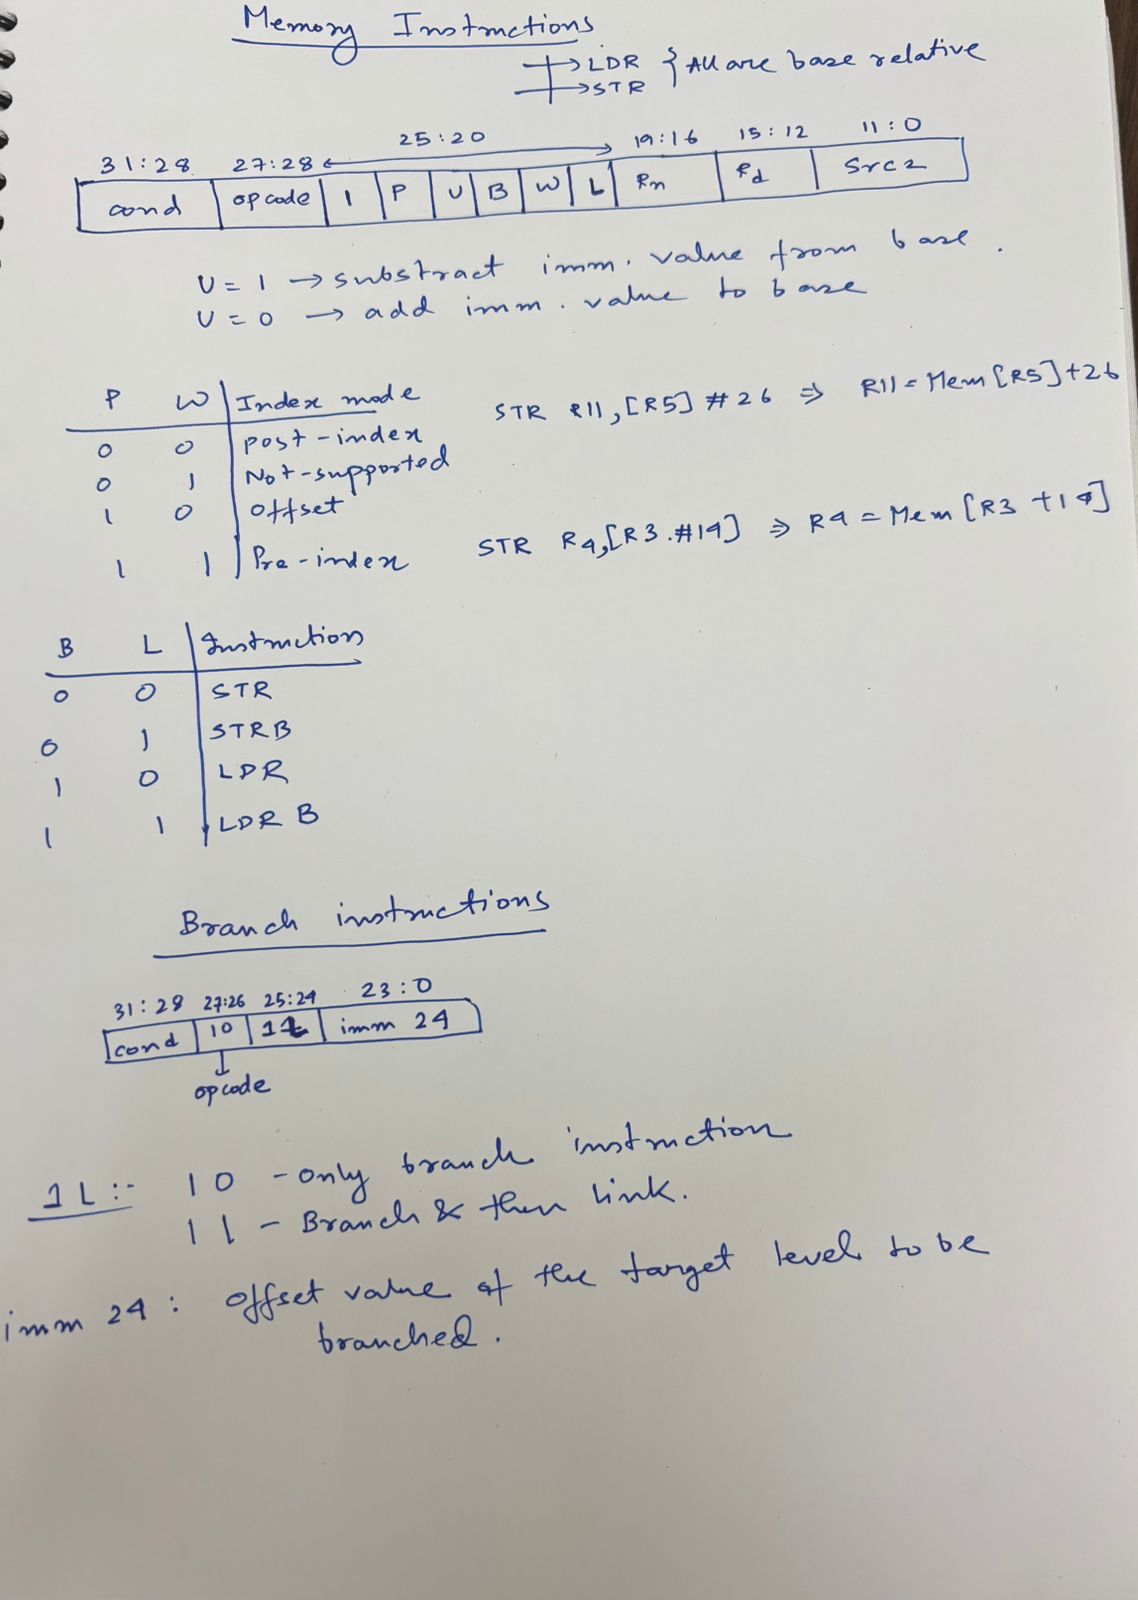 Memory Instructions
→ LDR } All are base relative
→ STR
25:20
31:28 27:28 19:16 15:12 11:0
cond opcode I P U B W L Rn Rd Src2
U = 1 → substract imm. value from base.
U = 0 → add imm. value to base
P W Index mode
0 0 post-index
STR R11,[R5] #26 ⇒ R11 = Mem[R5]+26
0 1 Not-supported
1 0 offset
1 1 Pre-index
STR R4,[R3.#14] ⇒ R4 = Mem[R3 +14]
B L Instruction
0 0 STR
0 1 STRB
1 0 LDR
1 1 LDR B
Branch instructions
31:28 27:26 25:24 23:0
cond 10 1L imm 24
opcode
1L :- 10 - only branch instruction
11 - Branch & then link.
imm 24 : offset value of the target level to be
branched.